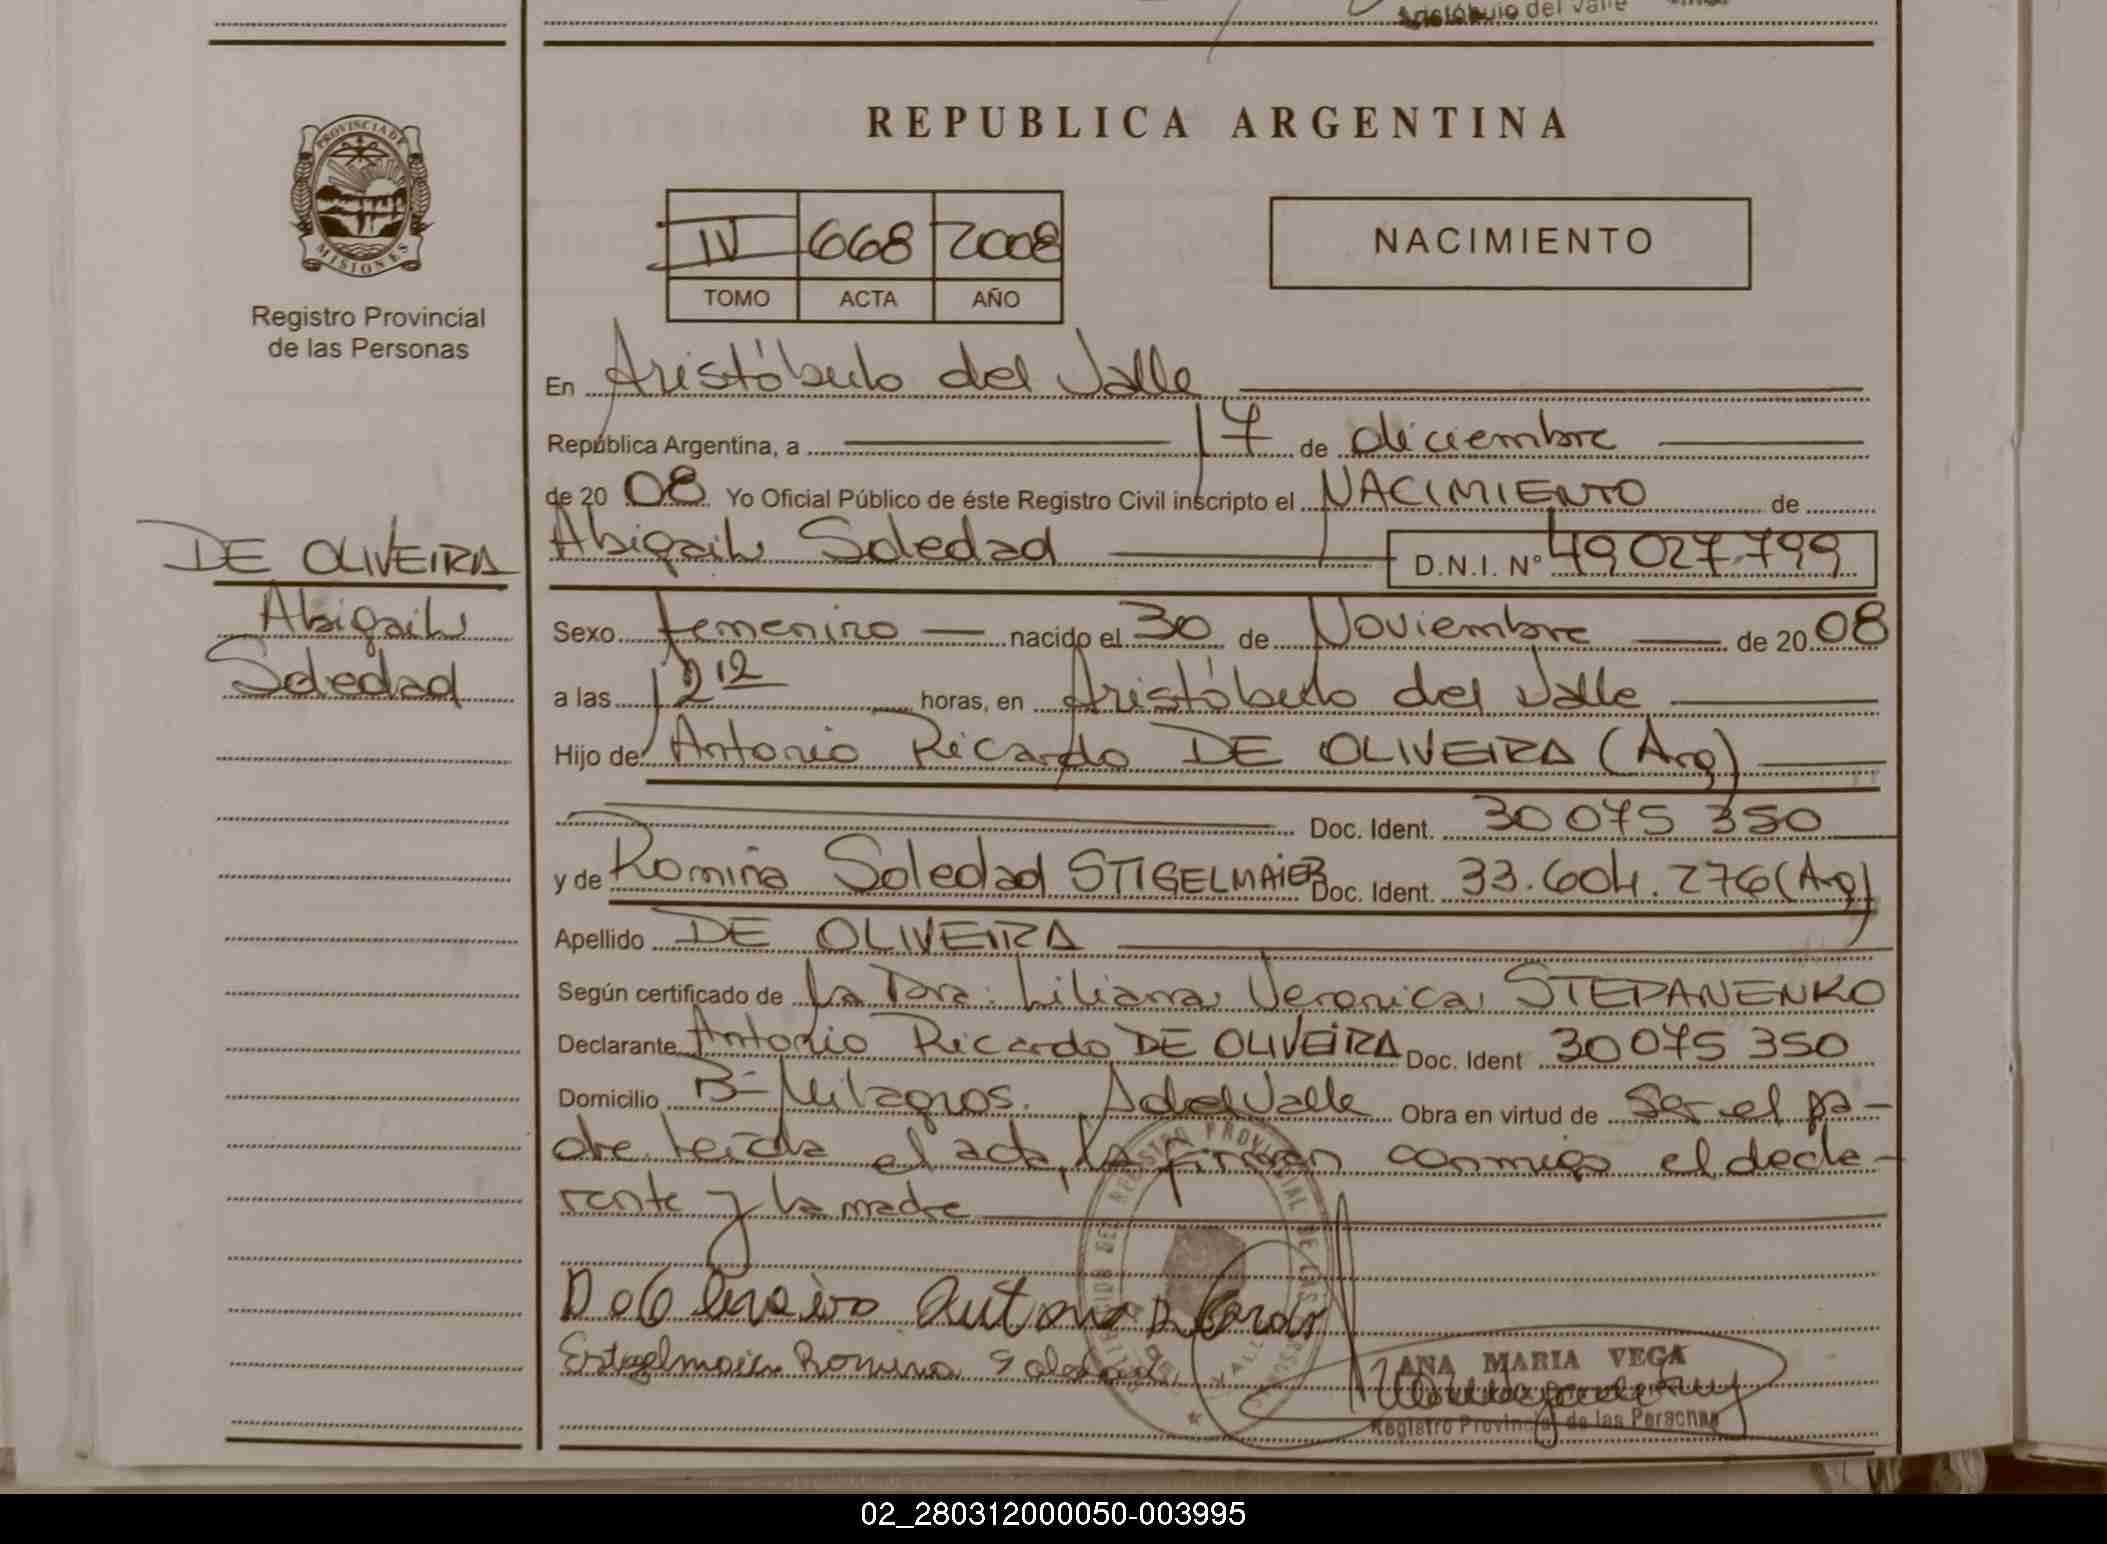 Aristóbulo del Valle
REPUBLICA ARGENTINA
PROVINCIA DE
MISIONES
Registro Provincial
de las Personas
IV 668 2008
TOMO ACTA AÑO
NACIMIENTO
En Aristóbulo del Valle
República Argentina, a 17 de diciembre
de 20 08 Yo Oficial Público de éste Registro Civil inscripto el NACIMIENTO de
DE OLIVEIRA
Abigail
Soledad
Abigail Soledad D.N.I. N° 49 027 799
Sexo femenino nacido el 30 de Noviembre de 20 08
a las 12 12 horas, en Aristóbulo del Valle
Hijo de Antonio Ricardo DE OLIVEIRA (Arg)
Doc. Ident. 30 075 350
y de Romina Soledad STIGELMAIER Doc. Ident. 33.604.276 (Arg)
Apellido DE OLIVEIRA
Según certificado de la Dra. Liliana Veronica STEPANENKO
Declarante Antonio Ricardo DE OLIVEIRA Doc. Ident 30 075 350
Domicilio B- Milagros. A del Valle Obra en virtud de ser el pa-
dre leída el acta, la firman conmigo el decla-
rante y la madre
REGISTRO PROVINCIAL DE LAS
Romina Soledad
ANA MARIA VEGA
Registro Provincial de las Personas
02_280312000050-003995